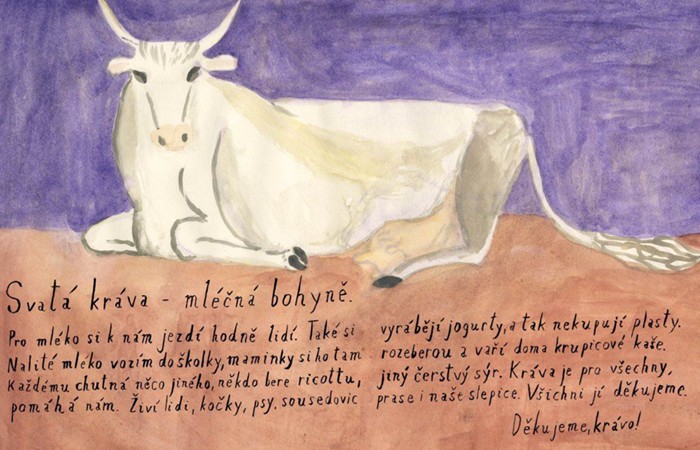 Svatá kráva - mléčná bohyně.
Pro mléko si k nám jezdí hodně lidí. Také si vyrábějí jogurty, a tak nekupují plasty.
Nalité mléko vozím do školky, maminky si ho tam rozeberou a vaří doma krupicové kaše.
Každému chutná něco jiného, někdo bere ricottu, jiný čerstvý sýr. Kráva je pro všechny,
pomáhá nám. Živí lidi, kočky, psy, sousedovic prase i naše slepice. Všichni jí děkujeme.
Děkujeme, krávo!